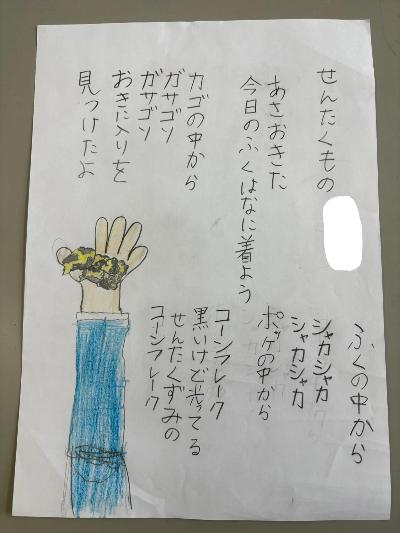 せんたくもの
あさおきた
今日のふくはなに着よう
カゴの中から
ガサゴソ
ガサゴソ
おきに入りを
見つけたよ
ふくの中から
シャカシャカ
シャカシャカ
ポッケの中から
コーンフレーク
黒いけど光ってる
せんたくずみの
コーンフレーク